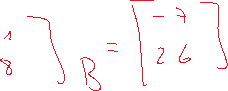 1
8 ] B = [ - 7
2 6 ]